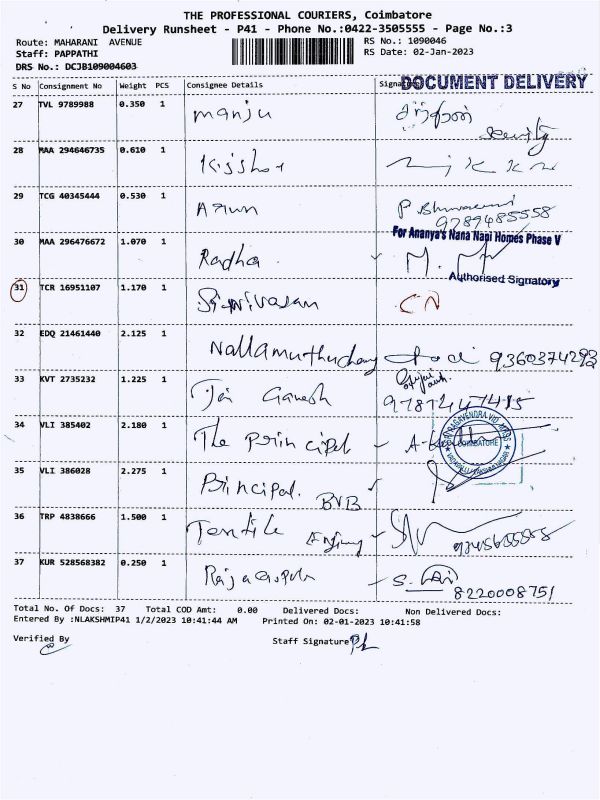 THE PROFESSIONAL COURIERS, Coimbatore
Delivery Runsheet - P41 - Phone No.:0422-3505555 - Page No.:3
Route: MAHARANI AVENUE
Staff: PAPPATHI
DRS No.: DCJB109004603
RS No.: 1090046
RS Date: 02-Jan-2023
S No Consignment No Weight PCS Consignee Details Signature
DOCUMENT DELIVERY
27 TVL 9789988 0.350 1 Manju
Security
28 MAA 294646735 0.610 1 Kisshor
29 TCG 40345444 0.530 1 Arun
9789485558
For Ananya's Nana Nani Homes Phase V
30 MAA 296476672 1.070 1 Radha
Authorised Signatory
31 TCR 16951107 1.170 1 Srinivasan
32 EDQ 21461440 2.125 1 9360374293
33 KVT 2735232 1.225 1 Jai Ganesh
34 VLI 385402 2.180 1 The Principal
COIMBATORE
35 VLI 386028 2.275 1 Principal. BVB
36 TRP 4838666 1.500 1 Textile
37 KUR 528568382 0.250 1 Rajagopal
8220008751
Total No. Of Docs: 37 Total COD Amt: 0.00 Delivered Docs: Non Delivered Docs:
Entered By :NLAKSHMIP41 1/2/2023 10:41:44 AM Printed On: 02-01-2023 10:41:58
Verified By
Staff Signature